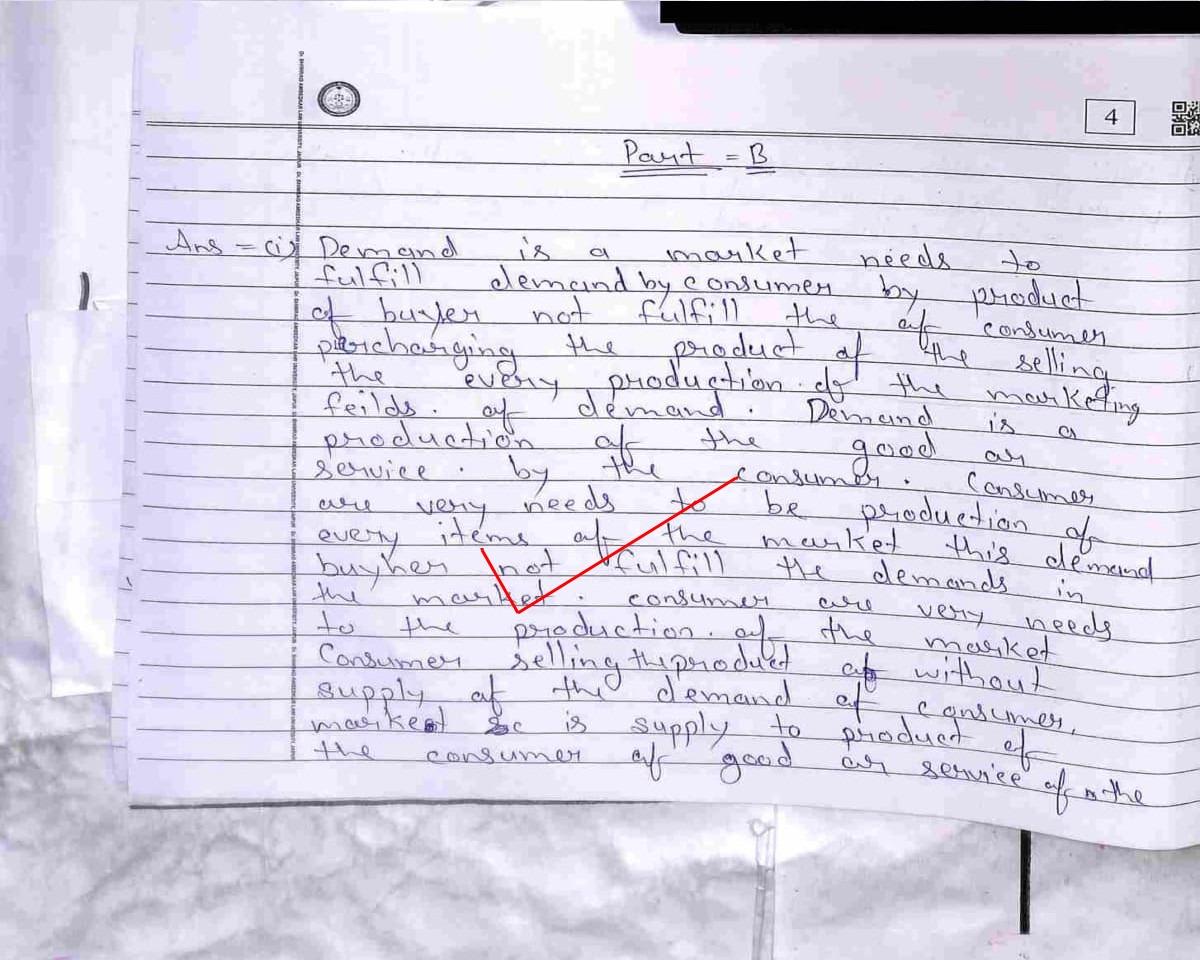 4
Part = B
Ans = (i) Demand is a market needs to
fulfill demand by consumer by product
of buyer not fulfill the of consumer
percharging the product of the selling
the every production. of the marketing
feilds. of demand. Demand is a
production of the good or
service. by the consumer. Consumer
are very needs to be production of
every items of the market this demand
buyher not fulfill the demands in
the market. consumer are very needs
to the production. of the market
Consumer selling the product of without
supply of the demand of consumer.
market is supply to product of
the consumer of good or service of the